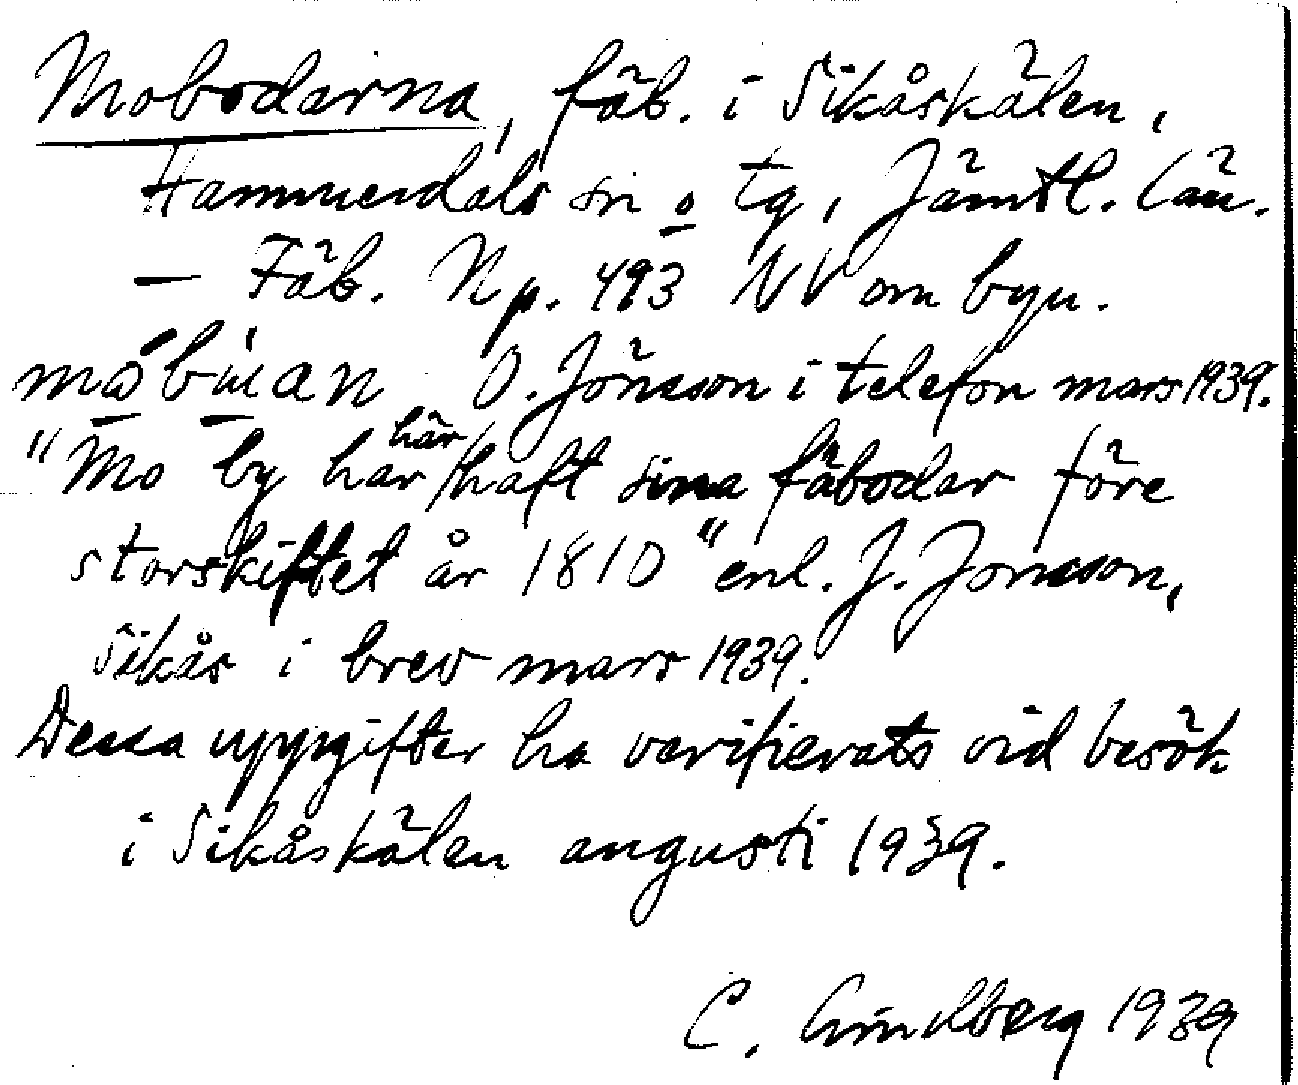 Mobodarna, fäb. i Sikåskälen,
Hammerdals sn o tg, Jämtl. län.
— Fäb. N p. 493 NV om byn.
O. Jönsson i telefon mars 1939.
"Mo by har här haft sina fäbodar före
storskiftet år 1810" enl. J. Jonsson,
Sikås i brev mars 1939.
Dessa uppgifter ha verifierats vid besök
i Sikåskälen augusti 1939.
C. Lindberg 1939